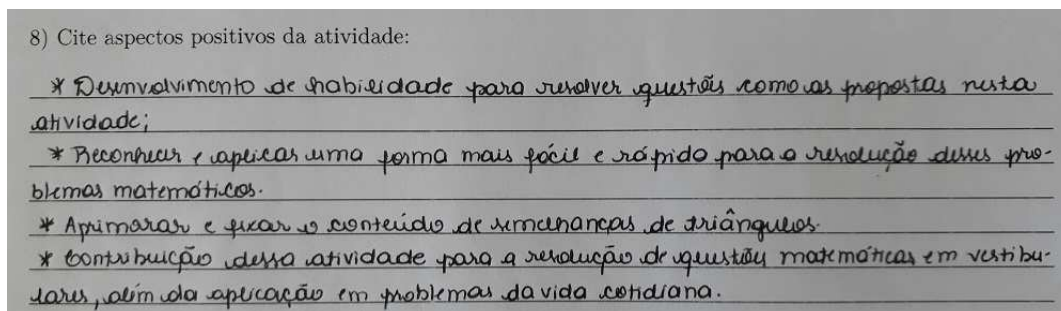 8) Cite aspectos positivos da atividade:
* Desenvolvimento de habilidade para resolver questões como as propostas nesta
atividade;
* Reconhecer e aplicar uma forma mais fácil e rápida para a resolução desses pro-
blemas matemáticos.
* Aprimorar e fixar o conteúdo de semelhanças de triângulos.
* Contribuição dessa atividade para a resolução de questões matemáticas em vestibu-
lares, além da aplicação em problemas da vida cotidiana.